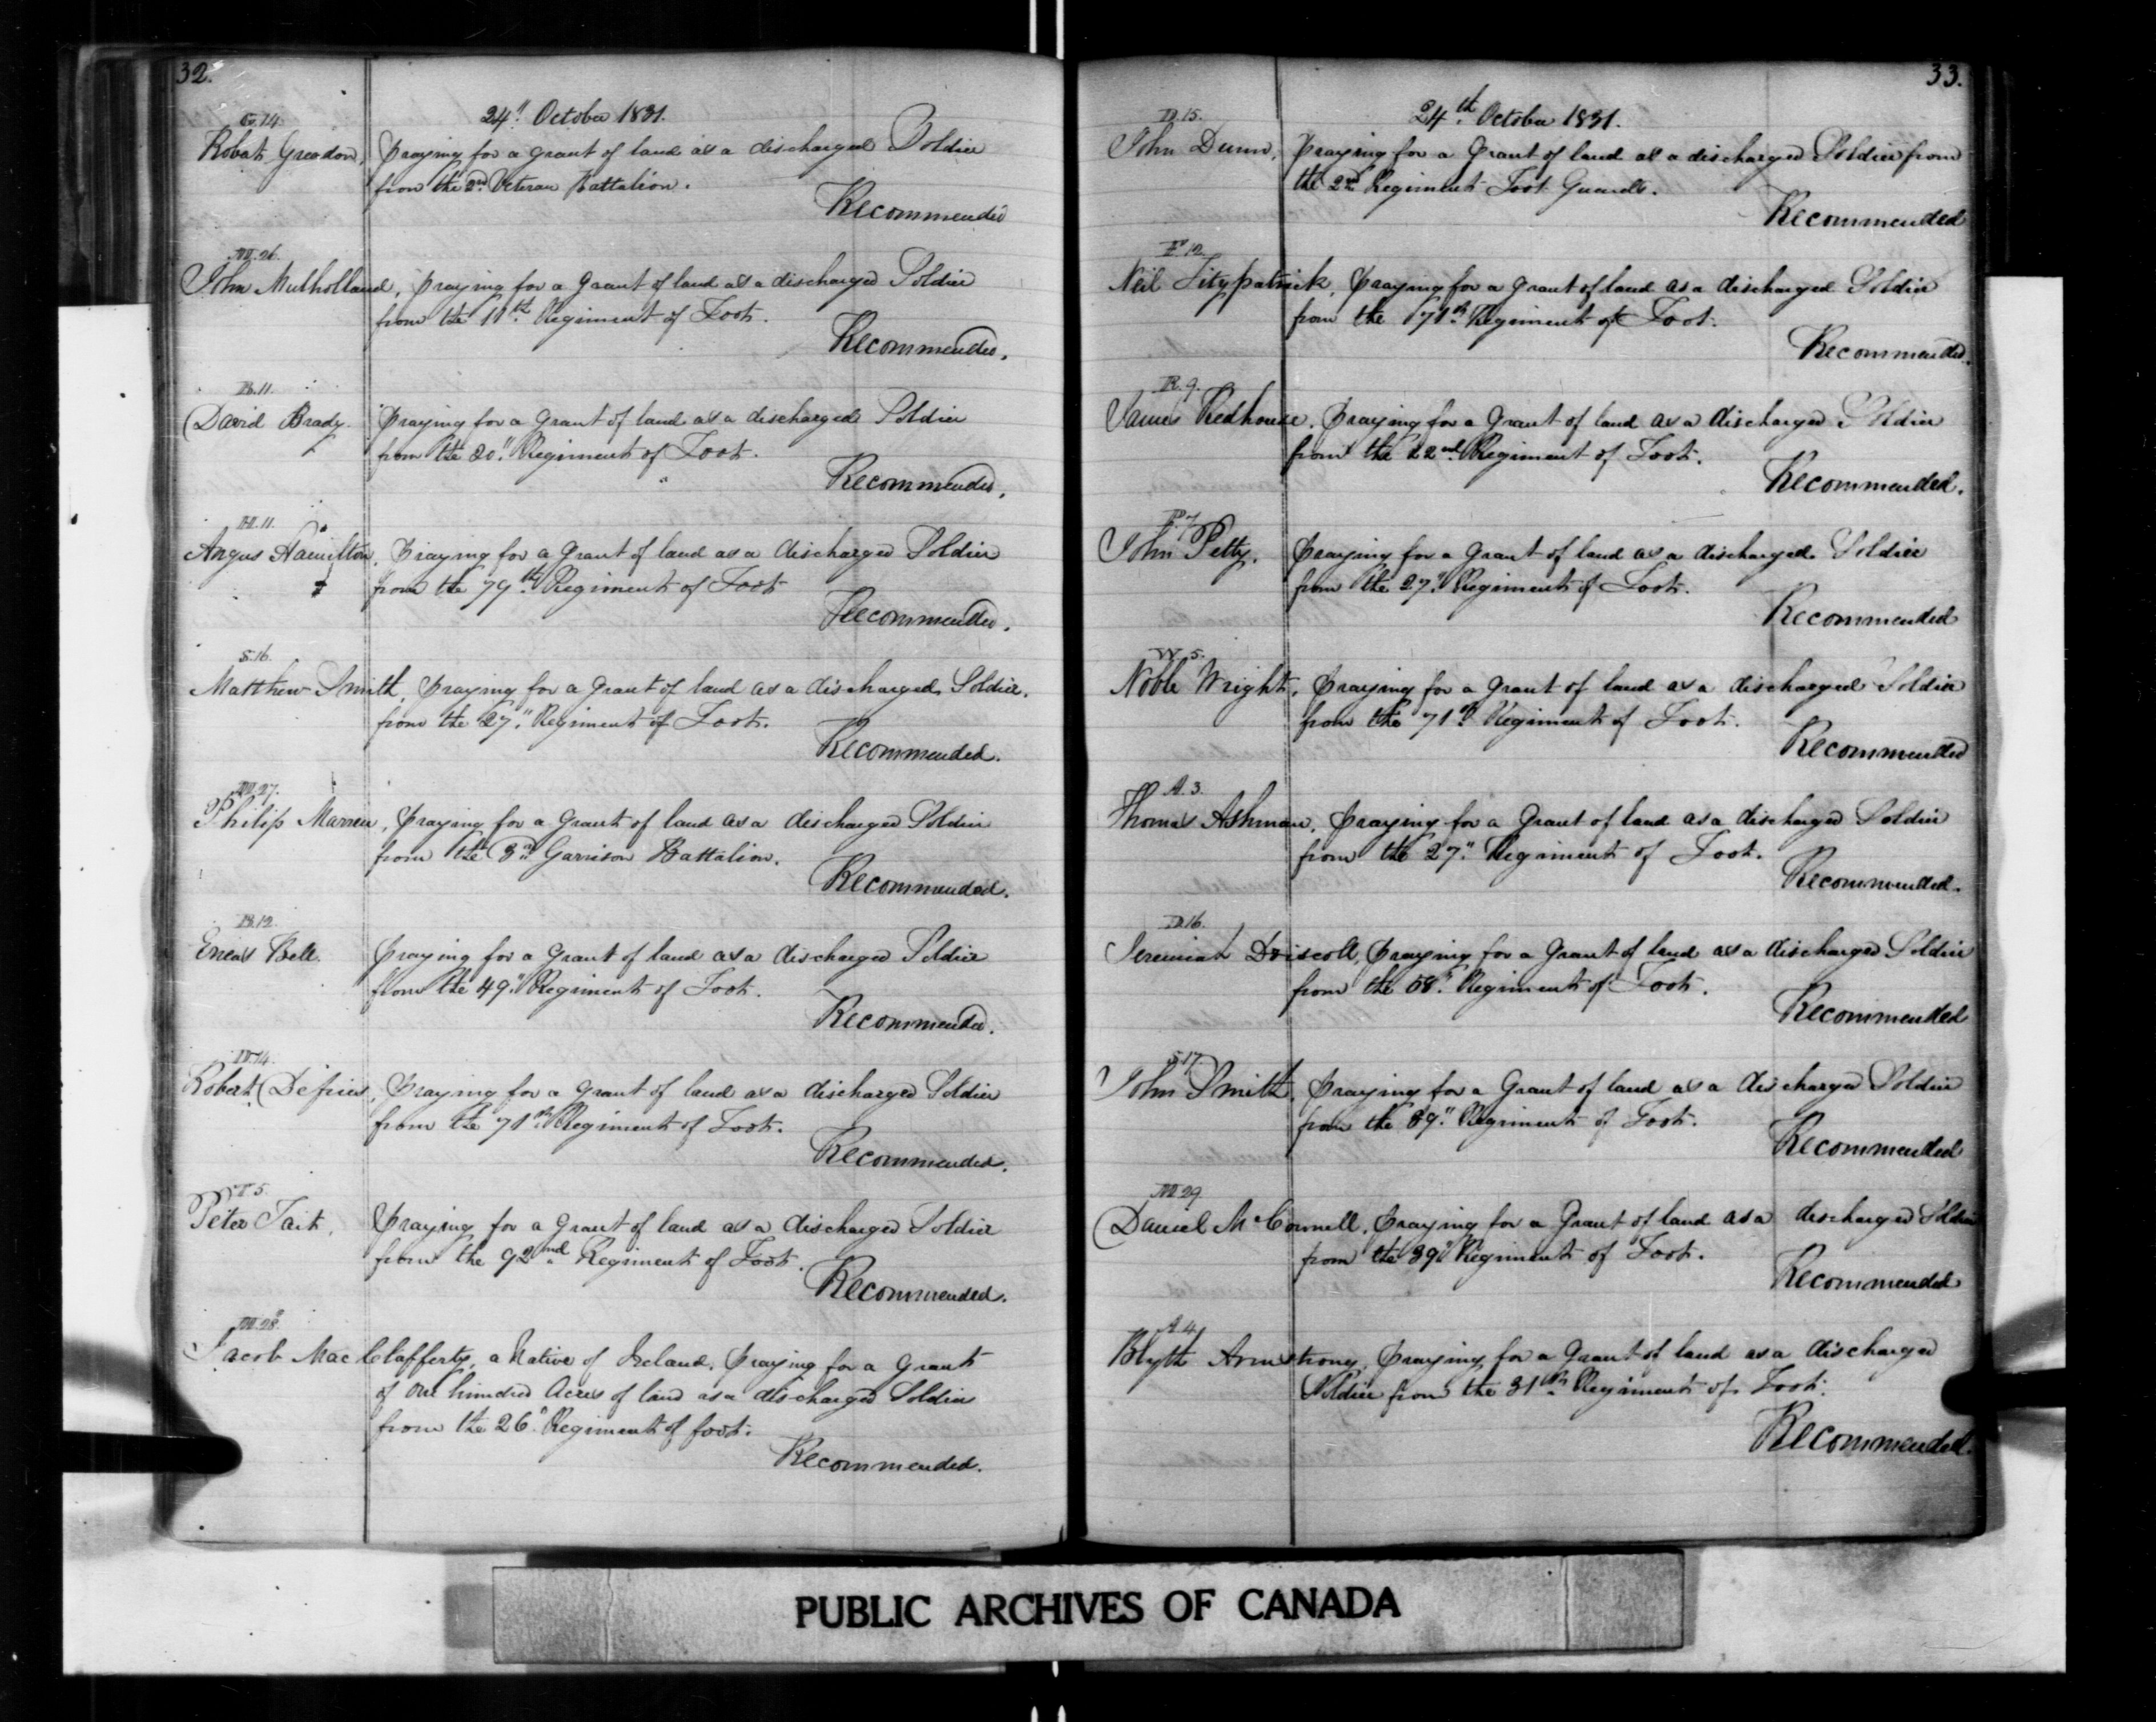 32.
24" October 1831.
G.14.
Robert Greadon, Praying for a grant of land as a discharged Soldier
from the 2nd Veteran Battalion.
Recommended
M.26.
John Mulholland, Praying for a grant of land as a discharged Soldier
from the 11th Regiment of Foot.
Recommended.
B.11.
David Brady. Praying for a grant of land as a discharged Soldier
from the 20" Regiment of Foot.
Recommended.
H.11.
Angus Hamilton, Praying for a grant of land as a discharged Soldier
from the 79th Regiment of Foot
Recommended.
S.16.
Matthew Smith, Praying for a grant of land as a discharged Soldier.
from the 27" Regiment of Foot.
Recommended.
M.27.
Philip Marren, Praying for a Grant of land as a discharged Soldier
from the 3rd Garrison Battalion.
Recommended.
B.12.
Eneas Bell. Praying for a grant of land as a discharged Soldier
from the 49" Regiment of Foot.
Recommended.
D.14.
Robert Defries, Praying for a grant of land as a discharged Soldier
from the 71st Regiment of Foot.
Recommended.
T.5.
Peter Tait, Praying for a Grant of land as a discharged Soldier
from the 92nd Regiment of Foot.
Recommended.
M.28.
Jacob MacClafferty, a Native of Ireland. Praying for a Grant
of one hundred Acres of land as a discharged Soldier
from the 26" Regiment of foot.
Recommended.
33.
24th October 1831.
D.15.
John Dunn, Praying for a Grant of land as a discharged Soldier from
the 2nd Regiment Foot Guards.
Recommended
F.12.
Neil Fitzpatrick, Praying for a grant of land as a discharged Soldier
from the 71st Regiment of Foot.
Recommended.
R.9.
James Redhouse. Praying for a Grant of land as a discharged Soldier
from the 22nd Regiment of Foot.
Recommended.
P.7.
John Petty. Praying for a grant of land as a discharged Soldier
from the 27" Regiment of Foot.
Recommended
W.5.
Noble Wright. Praying for a grant of land as a discharged Soldier
from the 71st Regiment of Foot.
Recommended
A.3.
Thomas Ashman. Praying for a Grant of land as a discharged Soldier
from the 27" Regiment of Foot.
Recommended.
D.16.
Jeremiah Driscoll, Praying for a Grant of land as a discharged Soldier
from the 58" Regiment of Foot.
Recommended
S.17.
John Smith, Praying for a Grant of land as a discharged Soldier
from the 89" Regiment of Foot.
Recommended
M.29.
Daniel McConnell, Praying for a Grant of land as a discharged Soldier
from the 39" Regiment of Foot.
Recommended
A.4.
Blyth Armstrong, Praying for a Grant of land as a discharged
Soldier from the 31st Regiment of Foot.
Recommended.
PUBLIC ARCHIVES OF CANADA